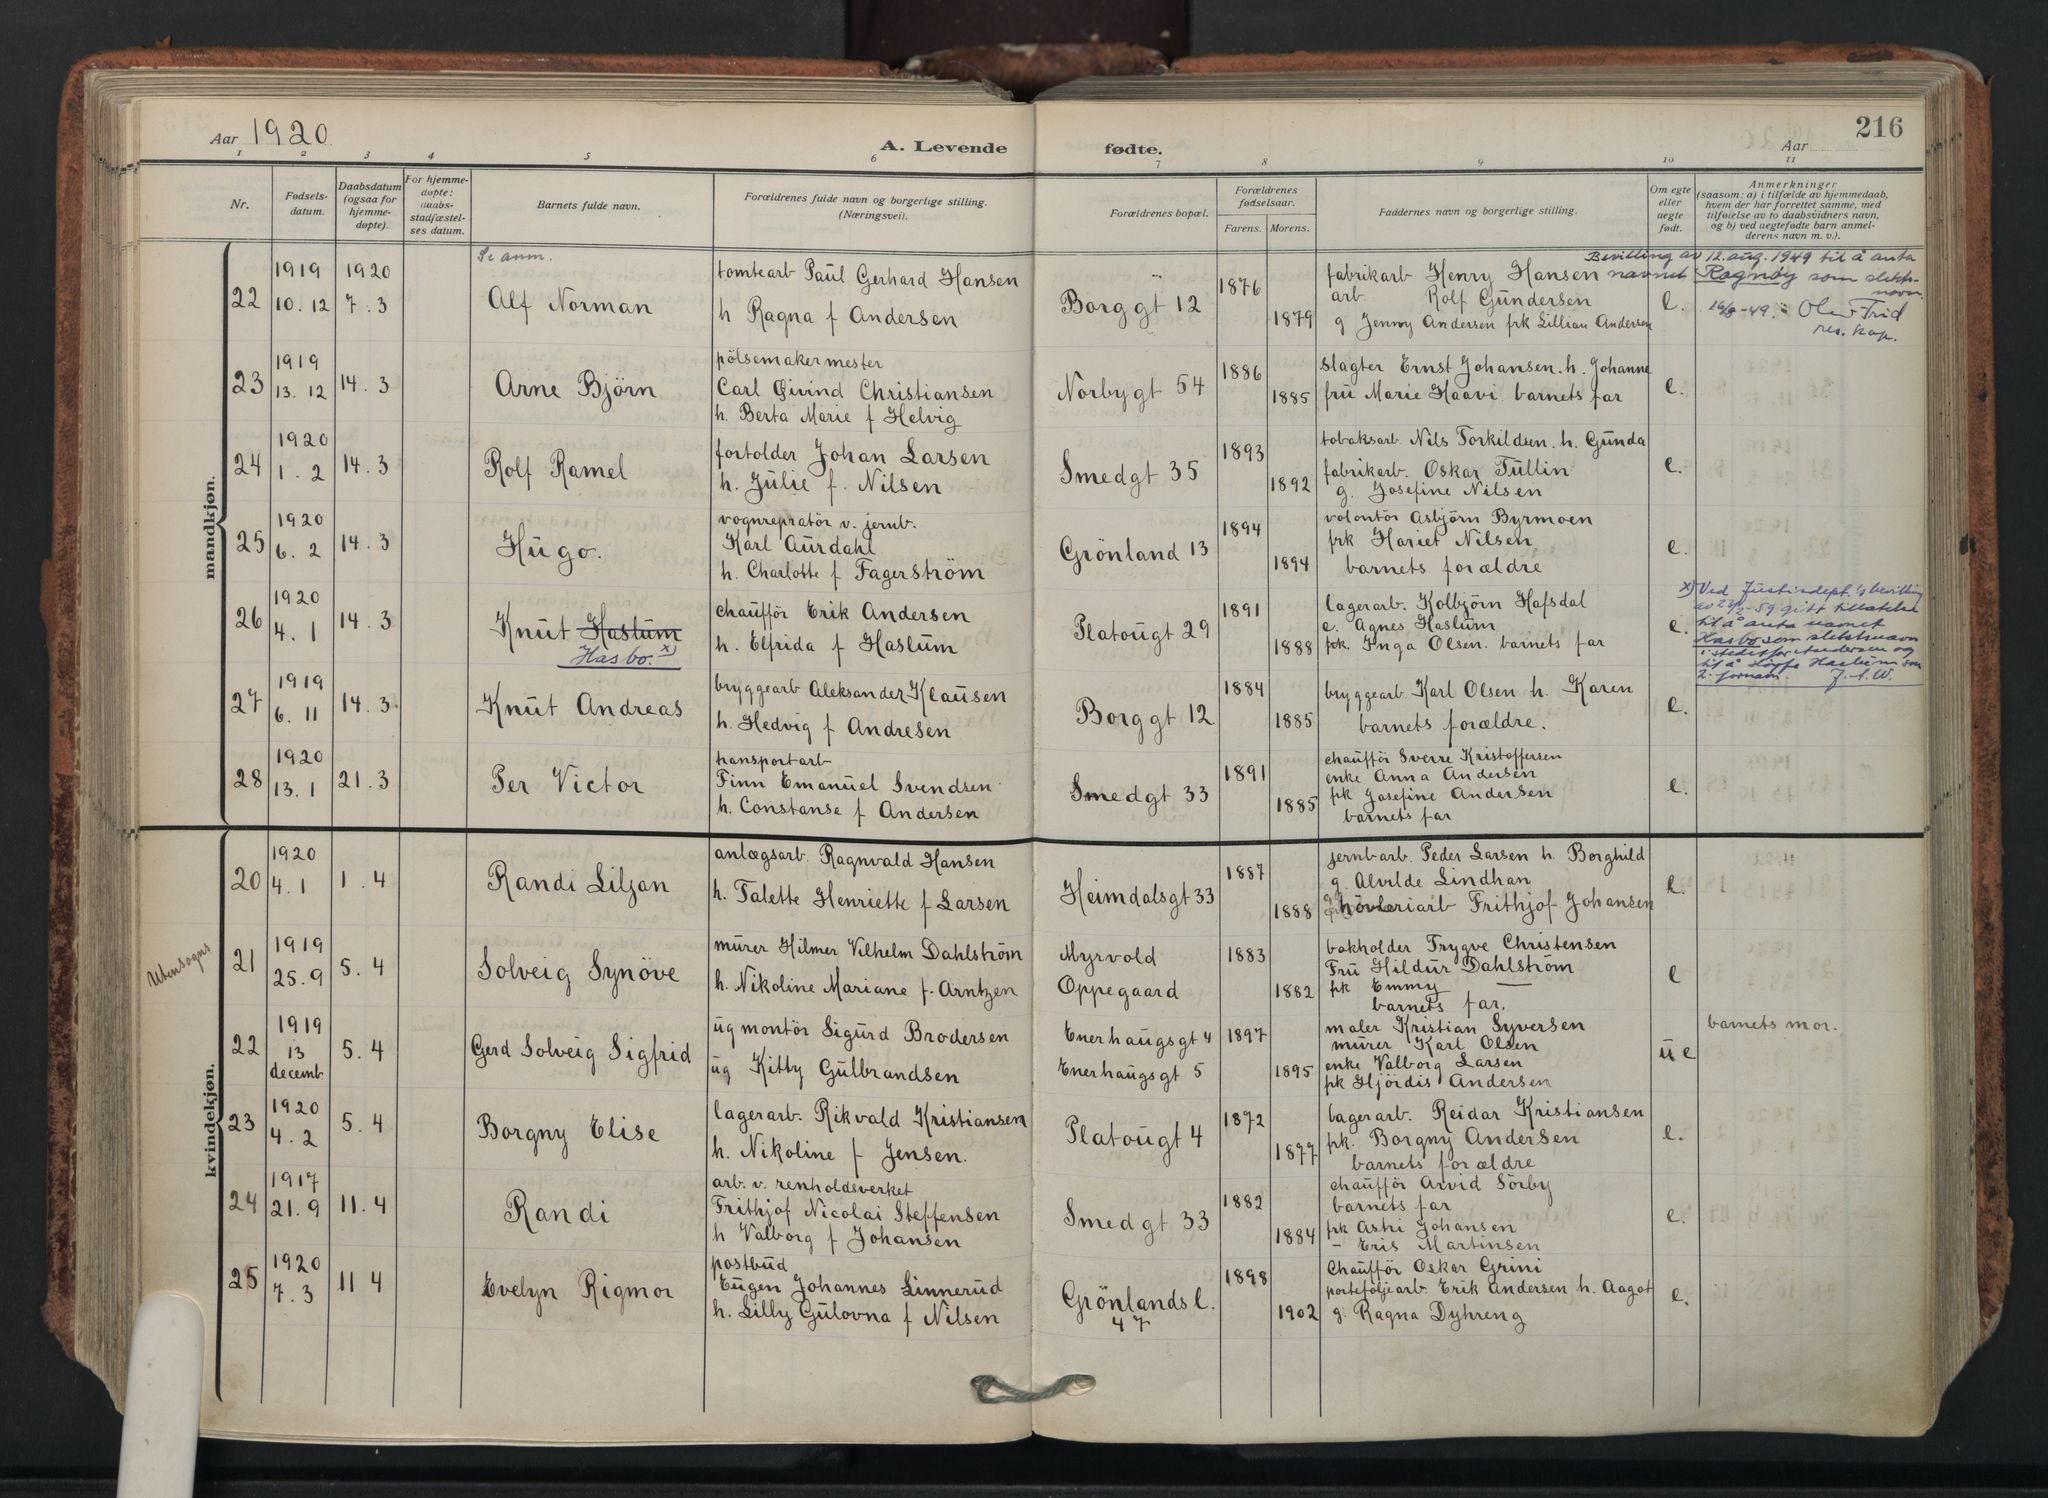 Aar 1920
A. Levende fødte.
Aar
216
1 2 3 4 5 6 7 8 9 10 11
Nr.
Fødsels-
datum.
Daabsdatum
(ogsaa for
hjemme-
døpte).
For hjemme-
døpte:
daabs-
stadfæstel-
ses datum.
Barnets fulde navn.
Forældrenes fulde navn og borgerlige stilling.
(Næringsvei).
Forældrenes bopæl.
Forældrenes
fødselsaar.
Farens. Morens.
Faddernes navn og borgerlige stilling.
Om egte
eller
uegte
født.
Anmerkninger
(saasom: a) i tilfælde av hjemmedaab,
hvem der har forrettet samme, med
tilføielse av to daabsvidners navn,
og b) ved uegtefødte barn anmel-
derens navn m. v.).
mandkjøn.
Se anm.
22
1919
10.12
1920
7.3
Alf Norman
tomtearb Paul Gerhard Hansen
h Ragna f Andersen
Borggt 12
1876
1879
fabrikarb Henry Hansen
arb. Rolf Gundersen
g Jenny Andersen frk Lillian Andersen
e.
Bevilling av 12. aug. 1949 til å anta
navnet Ragnøy som slekts-
navn.
16/8-49. Olav Trid
res. kap.
23
1919
13.12
14.3
Arne Björn
pölsemakermester
Carl Öivind Christiansen
h. Berta Marie f Helvig
Norbygt 54
1886
1885
slagter Ernst Johansen. h. Johanne
fru Marie Haavi. barnets far
e.
24
1920
1.2
14.3
Rolf Ramel
fortolder Johan Larsen
h. Julie f. Nilsen
Smedgt 35
1893
1892
tobaksarb. Nils Torkildsen. h. Gunda
fabrikarb. Oskar Tullin
g. Josefine Nilsen
e.
25
1920
6.2
14.3
Hugo.
vognrepratör v. jernb.
Karl Aurdahl
h. Charlotte f Fagerström
Grönland 13
1894
1894
volontör Asbjörn Byrmoen
frk Hariet Nilsen
barnets forældre
e.
26
1920
4.1
14.3
Knut Haslum
Hasbo. x)
chaufför Erik Andersen
h. Elfrida f Haslum
Platougt 29
1891
1888
lagerarb. Kolbjörn Hafsdal
e. Agnes Haslum
frk. Inga Olsen. barnets far
e.
x) Ved Justisdept.'s bevilling
av 23/2-59 gitt tillatelse
til å anta navnet
Hasbo som slektsnavn
i stedet for Andersen og
til å sløyfe Haslum som
2. fornavn. J. S. W.
27
1919
6.11
14.3
Knut Andreas
bryggearb Aleksander Klausen
h. Hedvig f Andresen
Borggt 12
1884
1885
bryggearb. Karl Olsen h. Karen
barnets forældre.
e.
28
1920
13.1
21.3
Per Victor
transportarb
Finn Emanuel Svendsen
h. Constanse f Andersen
Smedgt 33
1891
1885
chaufför Sverre Kristoffersen
enke Anna Andersen
frk Josefine Andersen
barnets far
e.
kvindekjøn.
20
1920
4.1
1.4
Randi Liljan
anlægsarb. Ragnvald Hansen
h. Talette Henriette f Larsen
Heimdalsgt 33
1887
1888
jernbarb. Peder Larsen h. Borghild
g. Alvilde Lindhan
hövleriarb Frithjof Johansen
e.
Utensogns
21
1919
25.9
5.4
Solveig Synöve
murer Hilmer Vilhelm Dahlström
h. Nikoline Mariane f. Arntzen
Myrvold
Oppegaard
1883
1882
bokholder Trygve Christensen
Fru Hildur Dahlström
frk Emmy —
barnets far.
e
22
1919
13
decemb
5.4
Gerd Solveig Sigfrid
ug montör Sigurd Brodersen
ug Kitty Gulbrandsen
Enerhaugsgt 4
Enerhaugsgt 5
1897
1895
maler Kristian Syversen
murer Karl Olsen
enke Valborg Larsen
frk Hjördis Andersen
u e
barnets mor.
23
1920
4.2
5.4
Borgny Elise
lagerarb. Rikvald Kristiansen
h. Nikoline f Jensen.
Platougt 4
1872
1877
lagerarb. Reidar Kristiansen
frk. Borgny Andersen
barnets forældre
e.
24
1917
21.9
11.4
Randi
arb. v. renholdsverket
Frithjof Nicolai Steffensen
h Valborg f Johansen
Smedgt 33
1882
1884
chaufför Arvid Sörby
barnets far
frk Asti Johansen
– Eris Martinsen
e.
25
1920
7.3
11 4
Evelyn Rigmor
postbud
Eugen Johannes Linnerud
h. Lilly Gulovna f Nilsen
Grönlandsl.
47
1898
1902
Chaufför Oskar Grini
porteföljearb. Erik Andersen h. Aagot
g. Ragna Dyhreng
e.